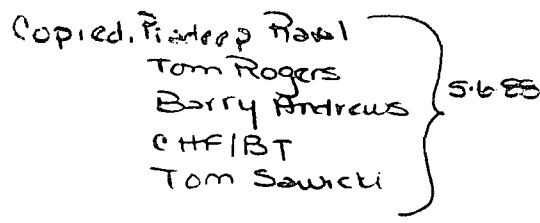 Copied. Pradeep Raval
Tom Rogers
Barry Andrews
CHF/BT
Tom Sawicki
5.6.88